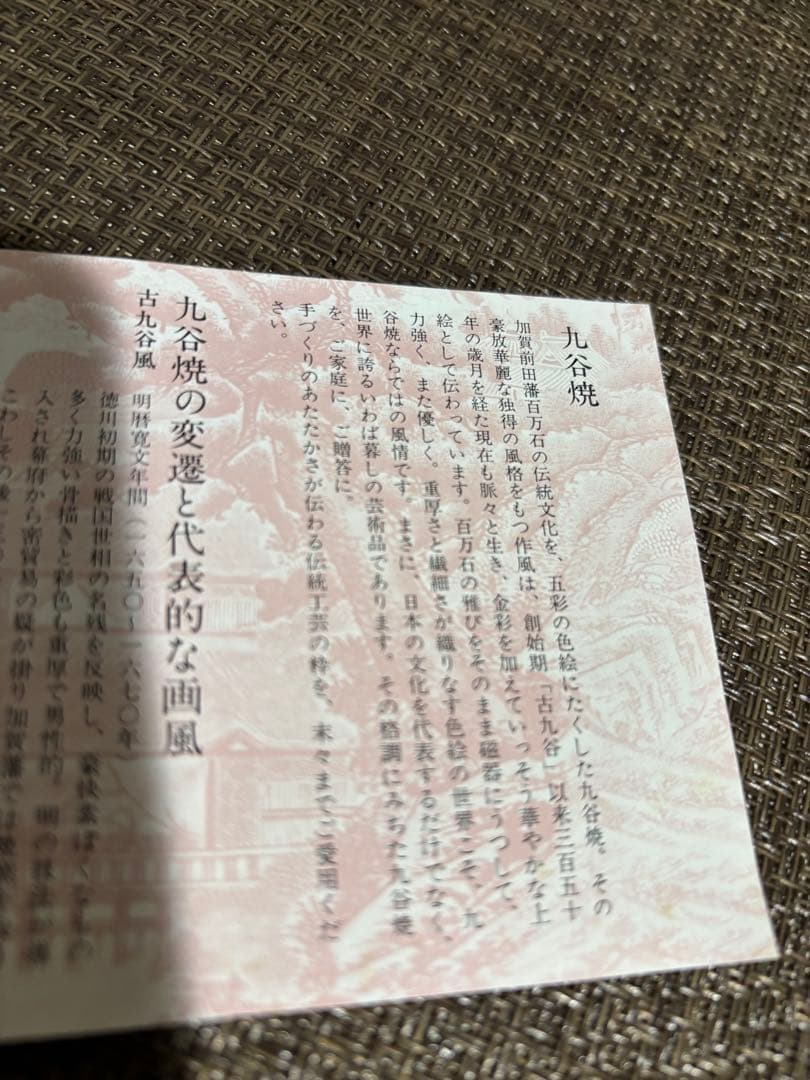 九谷焼
加賀前田藩百万石の伝統文化を、五彩の色絵にたくした九谷焼。その
豪放華麗な独得の風格をもつ作風は、創始期「古九谷」以来三百五十
年の歳月を経た現在も脈々と生き、金彩を加えていっそう華やかな上
絵として伝わっています。百万石の雅びをそのまま磁器にうつして、
力強く、また優しく。重厚さと繊細さが織りなす色絵の世界こそ、九
谷焼ならではの風情です。まさに、日本の文化を代表するだけでなく、
世界に誇るいわば暮しの芸術品であります。その格調にみちた九谷焼
を、ご家庭に、ご贈答に。
手づくりのあたたかさが伝わる伝統工芸の粋を、末々までご愛用くだ
さい。
九谷焼の変遷と代表的な画風
古九谷風
明暦寛文年間(一六五〇〜一六七〇年)
徳川初期の戦国世相の名残を反映し、豪快素ぼくなもの
多く力強い骨描きと彩色も重厚で男性的。明の技法が導
入され幕府から密貿易の疑が掛り加賀藩では